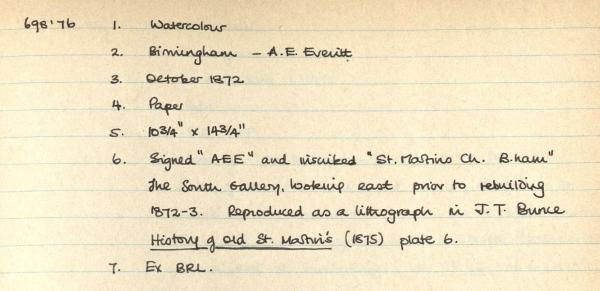 698'76 1. Watercolour
2. Birmingham – A.E. Everitt
3. October 1872
4. Paper
5. 10 3/4" x 14 3/4"
6. Signed "AEE" and inscribed "St. Martins Ch. B.ham"
The South Gallery, looking east prior to rebuilding
1872-3. Reproduced as a lithograph in J.T. Bunce
History of old St. Martin's (1875) plate 6.
7. Ex BRL.